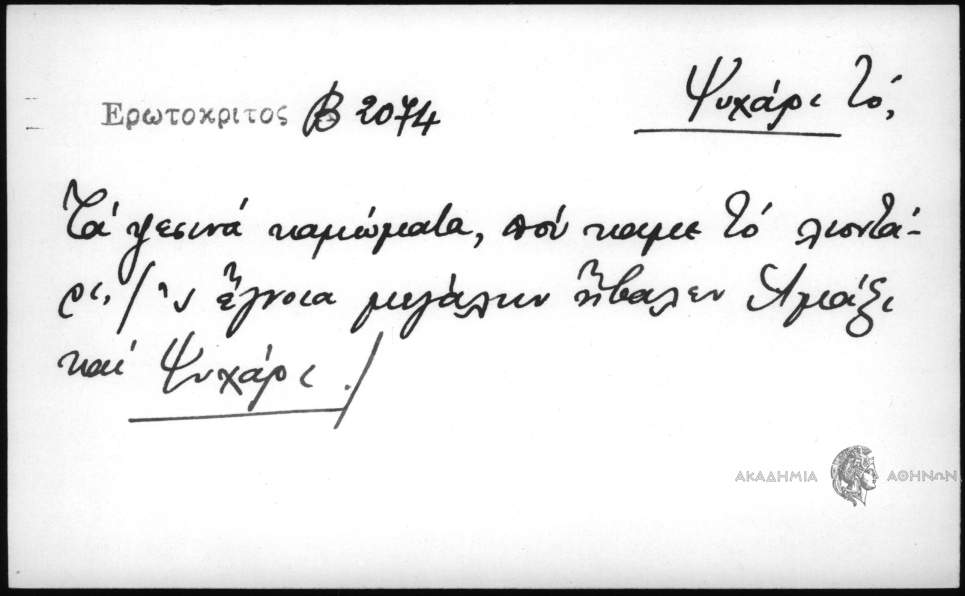 Ερωτοκριτος Β 2074
Ψυχάρι τό,
Τά ψεσινά καμώματα, πού καμε τό λιοντά-
ρι, / 'ς ἔγνοια μεγάλην ἤβαλεν Ἁμάξι
καί Ψυχάρι./
ΑΚΑΔΗΜΙΑ ΑΘΗΝΩΝ